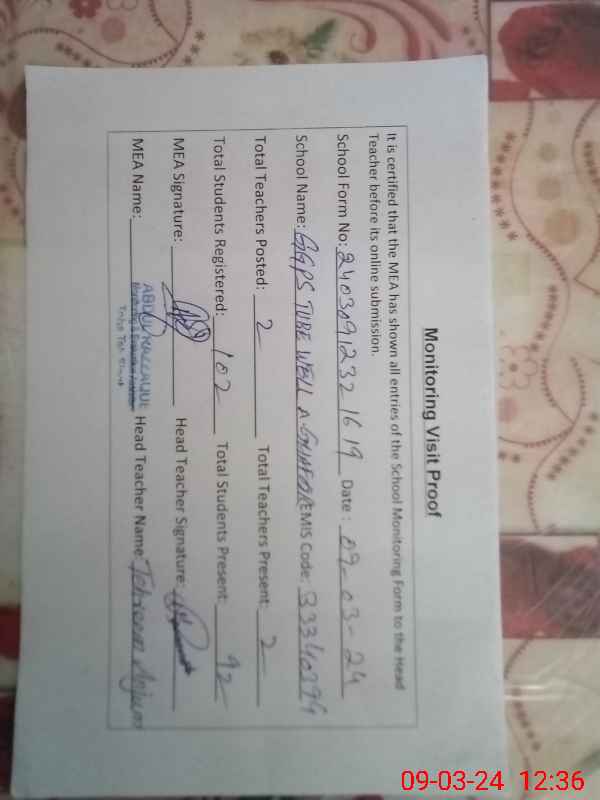 Monitoring Visit Proof
It is certified that the MEA has shown all entries of the School Monitoring Form to the Head
Teacher before its online submission.
School Form No: 2403091232 1619 Date : 09-03-24
School Name: GGPS TUBE WELL A. EMIS Code: 33340394
Total Teachers Posted: 2 Total Teachers Present: 2
Total Students Registered: 102 Total Students Present: 92
MEA Signature: Head Teacher Signature:
MEA Name: ABDUL RAZZAQUE Head Teacher Name: Anjum
09-03-24 12:36